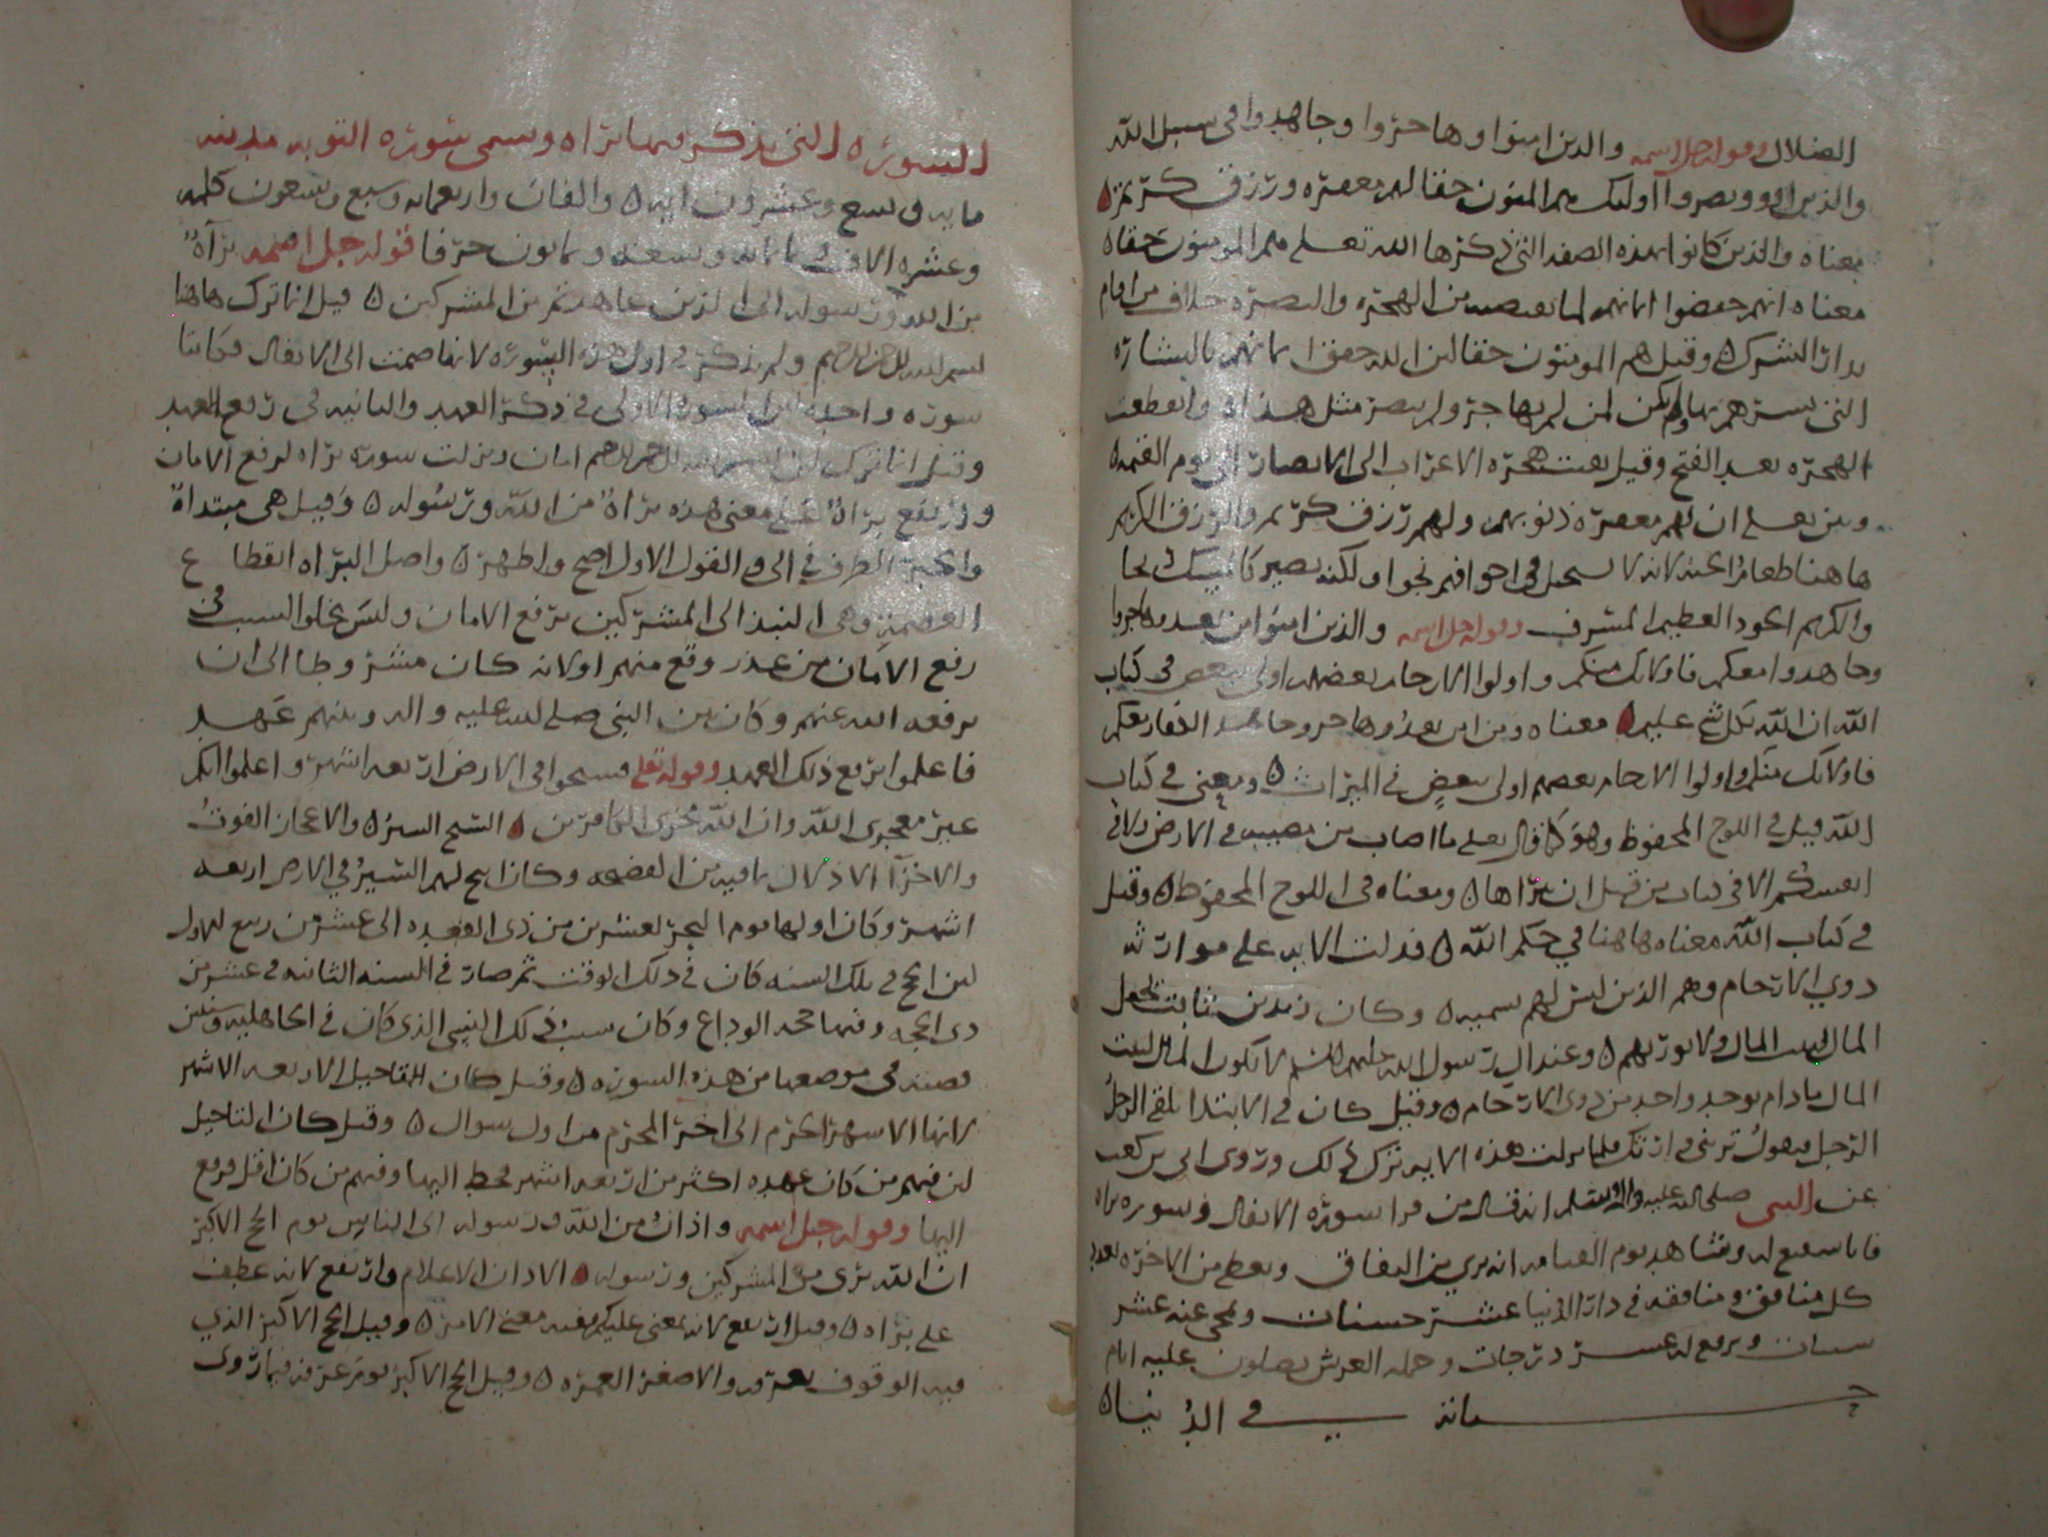 الضلال وقوله جل اسمه والذين امنوا وهاجروا وجاهدوا في سبيل الله
والذين اووا ونصروا اوليك هم المومنون حقا لهم مغفرة ورزق كريم
معناه والذين كانوا بهذه الصفه التي ذكرها الله تعلى هم المومنون حقا
معناه انهم حققوا ايمانهم لما يقتضيه من الهجرة والنصرة خلاف من اقام
بدار الشرك وقيل هم المومنون حقا لان الله حقق ايمانهم بالبشارة
التي بشرهم بها ولم يكن لمن لم يهاجر ولم ينصر مثل هذا وانقطعت
الهجرة بعد الفتح وقيل بقيت هجرة الاعراب الى الامصار الى يوم القيمة
وبين تعلى ان لهم مغفرة ذنوبهم ولهم رزق كريم والرزق الكريم
هاهنا طعام الجنة لانه لا يستحيل في اجوافهم نجوا ولكنه يصير كالمسك ريحا
والكريم الجود العظيم الشرف وقوله جل اسمه والذين امنوا من بعد وهاجروا
وجاهدوا معكم فاوليك منكم واولوا الارحام بعضهم اولى ببعض في كتاب
الله ان الله بكل شي عليم معناه ومن امن بعد وهاجر وجاهد الكفار معكم
فاوليك منكم واولوا الارحام بعضهم اولى ببعض في الميراث ومعنى في كتاب
الله قيل في اللوح المحفوظ وهو كما قال تعلى ما اصاب من مصيبة في الارض ولا في
انفسكم الا في كتاب من قبل ان نبراها ومعناه في اللوح المحفوظ وقيل
في كتاب الله معناه هاهنا في حكم الله فدلت الايه على موارثة
ذوي الارحام وهم الذين ليس لهم تسمية وكان زيد بن ثابت يجعل
المال لبيت المال ولا يورثهم وعند ال رسول الله عليهم السلم لا يكون المال لبيت
المال ما دام يوجد واحد من ذوي الارحام وقيل كان في الابتدا يلقى الرجل
الرجل فيقول ترثني وارثك فلما نزلت هذه الايه ترك ذلك وروى ابي بن كعب
عن النبي صلى الله عليه واله وسلم انه قال من قرا سورة الانفال وسورة براه
فانا شفيع له وشاهد يوم القيامه انه بري من النفاق واعطي من الاجر بعدد
كل منافق ومنافقه في دار الدنيا عشر حسنات ومحي عنه عشر
سيات ورفع له عشر درجات وحمله العرش يصلون عليه ايام
حياته في الدنيا
السورة التي يذكر فيها براه وتسمى سورة التوبه مدنيه
مايه وتسع وعشرون ايه والفان واربعمايه وسبع وتسعون كلمه
وعشره الاف وثمانمايه وسبعه وثمانون حرفا قوله جل اسمه براة
من الله ورسوله الى الذين عاهدتم من المشركين قيل انما ترك هاهنا
بسم الله الرحمن الرحيم ولم يذكر في اول هذه السورة لانها ضمت الى الانفال فكانتا
سورة واحده لان السورة الاولى في ذكر العهد والثانيه في رفع العهد
وقيل انما ترك لان بسم الله الرحمن الرحيم امان ونزلت سورة براه لرفع الامان
وارتفع براة على معنى هذه براة من الله ورسوله وقيل هي مبتداة
والخبر الظرف في الى والقول الاول اصح واظهر واصل البراه انقطاع
العصمة وهي النبذ الى المشركين برفع الامان وليس يخلوا السبب في
رفع الامان من غدر وقع منهم او لانه كان مشروطا الى ان
يرفعه الله عنهم وكان بين النبي صلى الله عليه واله وبينهم عهد
فاعلموا برفع ذلك العهد وقوله تعلى فسيحوا في الارض اربعه اشهر واعلموا انكم
غير معجزي الله وان الله مخزي الكافرين السيح السير والاعجاز الفوت
والاخزا الاذلال بما فيه من الفضيحه وكان ابيح لهم السير في الارض اربعه
اشهر وكان اولها يوم النحر لعشرين من ذي القعده الى عشر من ربيع الاول
لان الحج في تلك السنه كان في ذلك الوقت ثم صار في السنه الثانيه في عشر من
ذي الحجه وفيها حجة الوداع وكان سبب ذلك النسي الذي كان في الجاهليه وسنبين
قصته في موضعها من هذه السورة وقيل كان التاجيل الاربعه الاشهر
لانها الاشهر الحرم الى اخر المحرم من اول شوال وقيل كان التاجيل
لان فيهم من كان عهده اكثر من اربعه اشهر فحط اليها وفيهم من كان اقل فرفع
اليها وقوله جل اسمه واذان من الله ورسوله الى الناس يوم الحج الاكبر
ان الله بري من المشركين ورسوله الاذان الاعلام وارتفع لانه عطف
على براه وقيل ارتفع لانه بمعنى عليكم ففيه معنى الامر وقيل الحج الاكبر الذي
فيه الوقوف بعرفه والاصغر العمره وقيل الحج الاكبر يوم عرفه فيما روى